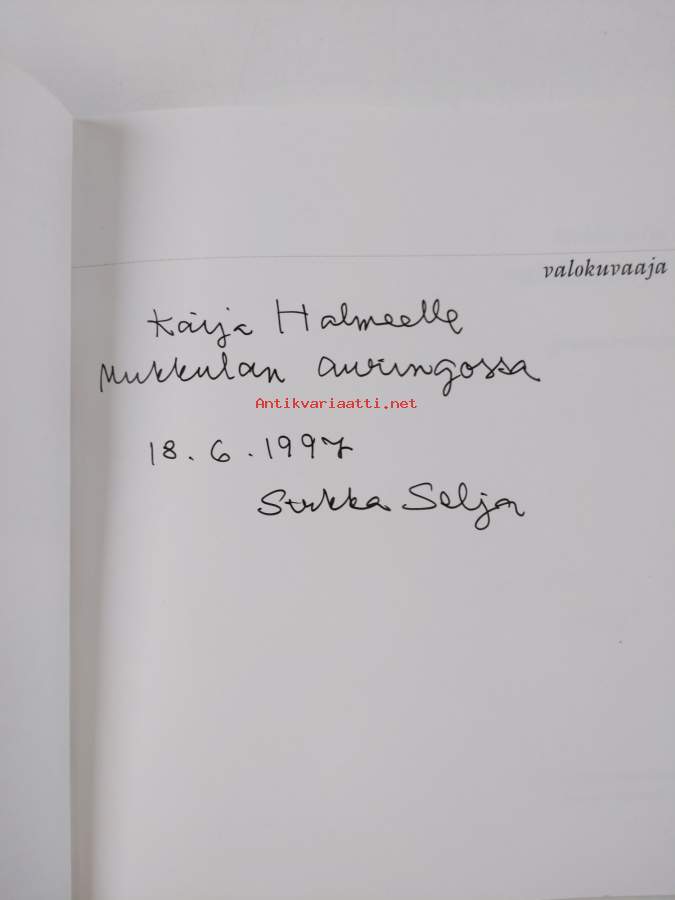 valokuvaaja
Kaija Halmeelle
Mukkulan auringossa
Antikvariaatti.net
18.6.1997
Sirkka Selja